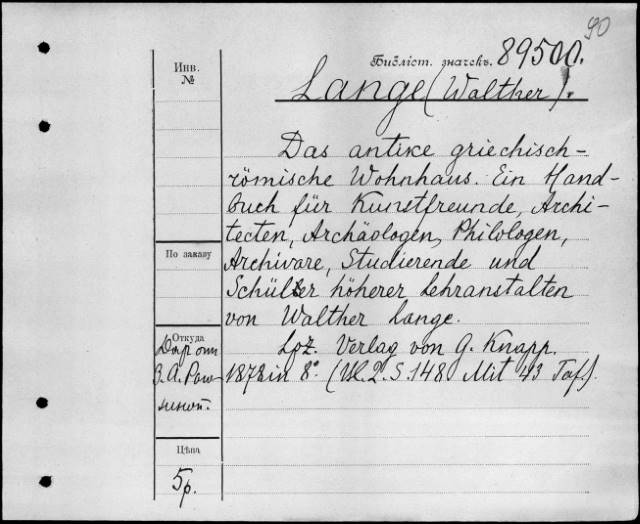 90
Библіот. значекъ. 89500.
Инв.
№
Lange (Walther).
Das antike griechisch-
römische Wohnhaus. Ein Hand-
buch für Kunstfreunde, Archi-
tecten, Archäologen, Philologen,
Archivare, Studierende und
Schüler höherer Lehranstalten
von Walther Lange.
Lpz. Verlag von G. Knapp.
1878 in 8° S. 148 Mit 43 Taf.).
По заказу
Откуда
Дар отъ
В. А.
Цѣна
5р.